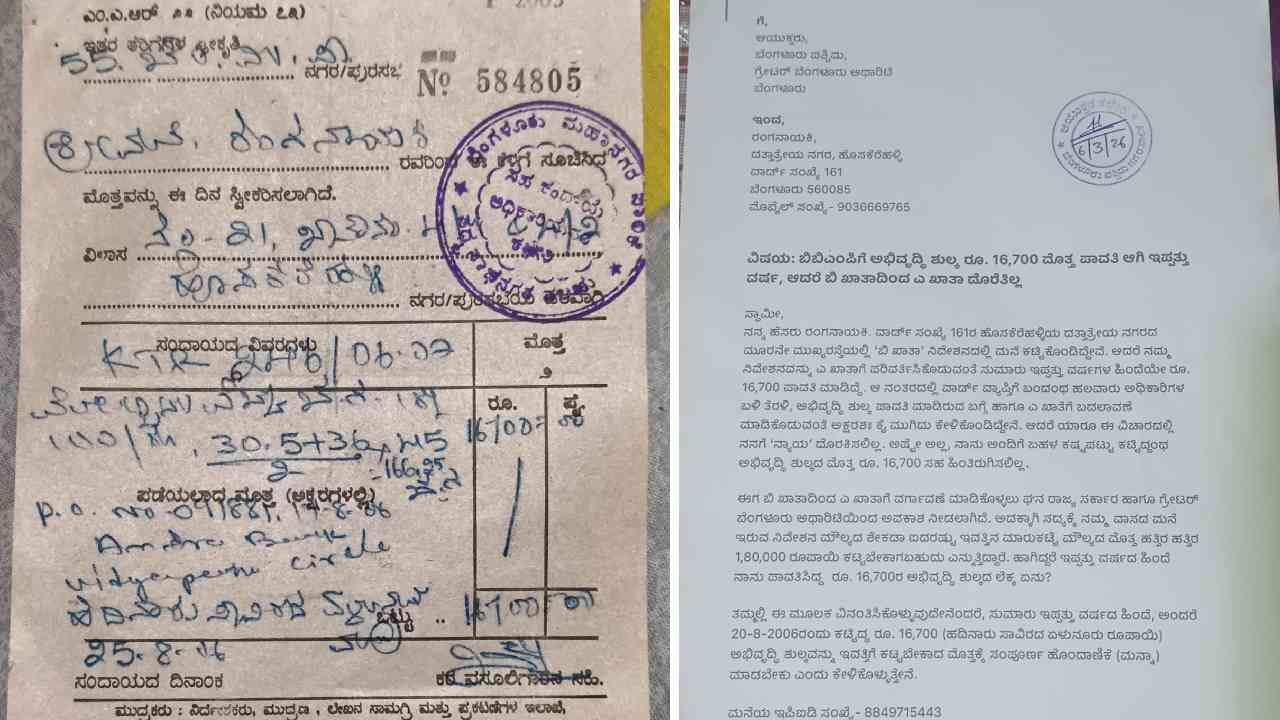 ಎಂ.ಎ.ಆರ್ ೨೨ (ನಿಯಮ ೭೩)
ಇತರ ಕರಗಳ ಸ್ವೀಕೃತಿ
ನಗರ/ಪುರಸಭೆ
Nº 584805
ಶ್ರೀಮತಿ. ರಂಗನಾಯಕಿ
ರವರಿಂದ ಈ ಕೆಳಗೆ ಸೂಚಿಸಿದ
ಮೊತ್ತವನ್ನು ಈ ದಿನ ಸ್ವೀಕರಿಸಲಾಗಿದೆ.
ವಿಲಾಸ ನಂ - 21,
ಹೊಸಕೆರೆಹಳ್ಳಿ
ನಗರ/ಪುರಸಭೆಯ
ಬೆಂಗಳೂರು ಮಹಾನಗರ ಪಾಲಿಕೆ
ಸಹ ಕಂದಾಯ
ಅಧಿಕಾರಿಯವರ
ಕಚೇರಿ
ಸಂದಾಯದ ವಿವರಗಳು ಮೊತ್ತ
KTR 248/06.07
ರೂ. ಪೈ.
30.5+36 x 45 16700=
2
ಪಡೆಯಲಾದ ಮೊತ್ತ (ಅಕ್ಷರಗಳಲ್ಲಿ)
P.O. No
Andhra Bank
Vidyapeeta Circle
ಹದಿನಾರು ಸಾವಿರದ
ಒಟ್ಟು .. 16700
25.8.06
ಸಂದಾಯದ ದಿನಾಂಕ ಕರ ವಸೂಲಿಗಾರನ ಸಹಿ.
ಮುದ್ರಕರು : ನಿರ್ದೇಶಕರು, ಮುದ್ರಣ , ಲೇಖನ ಸಾಮಗ್ರಿ ಮತ್ತು ಪ್ರಕಟಣೆಗಳ ಇಲಾಖೆ,
ಗೆ,
ಆಯುಕ್ತರು,
ಬೆಂಗಳೂರು ಪಶ್ಚಿಮ,
ಗ್ರೇಟರ್ ಬೆಂಗಳೂರು ಅಥಾರಿಟಿ
ಬೆಂಗಳೂರು
6/3/26
ಇಂದ,
ರಂಗನಾಯಕಿ,
ದತ್ತಾತ್ರೇಯ ನಗರ, ಹೊಸಕೆರೆಹಳ್ಳಿ
ವಾರ್ಡ್ ಸಂಖ್ಯೆ 161
ಬೆಂಗಳೂರು 560085
ಮೊಬೈಲ್ ಸಂಖ್ಯೆ- 9036669765
ವಿಷಯ: ಬಿಬಿಎಂಪಿಗೆ ಅಭಿವೃದ್ಧಿ ಶುಲ್ಕ ರೂ. 16,700 ಮೊತ್ತ ಪಾವತಿ ಆಗಿ ಇಪ್ಪತ್ತು
ವರ್ಷ, ಆದರೆ ಬಿ ಖಾತಾದಿಂದ ಎ ಖಾತಾ ದೊರೆತಿಲ್ಲ
ಸ್ವಾಮೀ,
ನನ್ನ ಹೆಸರು ರಂಗನಾಯಕಿ. ವಾರ್ಡ್ ಸಂಖ್ಯೆ 161ರ ಹೊಸಕೆರೆಹಳ್ಳಿಯ ದತ್ತಾತ್ರೇಯ ನಗರದ
ಮೂರನೇ ಮುಖ್ಯರಸ್ತೆಯಲ್ಲಿ 'ಬಿ ಖಾತಾ' ನಿವೇಶನದಲ್ಲಿ ಮನೆ ಕಟ್ಟಿಕೊಂಡಿದ್ದೇವೆ. ಆದರೆ ನಮ್ಮ
ನಿವೇಶನವನ್ನು ಎ ಖಾತಾಗೆ ಪರಿವರ್ತಿಸಿಕೊಡುವಂತೆ ಸುಮಾರು ಇಪ್ಪತ್ತು ವರ್ಷಗಳ ಹಿಂದೆಯೇ ರೂ.
16,700 ಪಾವತಿ ಮಾಡಿದ್ದೆ. ಆ ನಂತರದಲ್ಲಿ ವಾರ್ಡ್ ವ್ಯಾಪ್ತಿಗೆ ಬಂದಂಥ ಹಲವಾರು ಅಧಿಕಾರಿಗಳ
ಬಳಿ ತೆರಳಿ, ಅಭಿವೃದ್ಧಿ ಶುಲ್ಕ ಪಾವತಿ ಮಾಡಿರುವ ಬಗ್ಗೆ ಹಾಗೂ ಎ ಖಾತೆಗೆ ಬದಲಾವಣೆ
ಮಾಡಿಕೊಡುವಂತೆ ಅಕ್ಷರಶಃ ಕೈ ಮುಗಿದು ಕೇಳಿಕೊಂಡಿದ್ದೇನೆ. ಆದರೆ ಯಾರೂ ಈ ವಿಚಾರದಲ್ಲಿ
ನನಗೆ 'ನ್ಯಾಯ' ದೊರಕಿಸಲಿಲ್ಲ. ಅಷ್ಟೇ ಅಲ್ಲ, ನಾನು ಅಂದಿಗೆ ಬಹಳ ಕಷ್ಟಪಟ್ಟು ಕಟ್ಟಿದ್ದಂಥ
ಅಭಿವೃದ್ಧಿ ಶುಲ್ಕದ ಮೊತ್ತ ರೂ. 16,700 ಸಹ ಹಿಂತಿರುಗಿಸಲಿಲ್ಲ.
ಈಗ ಬಿ ಖಾತಾದಿಂದ ಎ ಖಾತಾಗೆ ವರ್ಗಾವಣೆ ಮಾಡಿಕೊಳ್ಳಲು ಘನ ರಾಜ್ಯ ಸರ್ಕಾರ ಹಾಗೂ ಗ್ರೇಟರ್
ಬೆಂಗಳೂರು ಅಥಾರಿಟಿಯಿಂದ ಅವಕಾಶ ನೀಡಲಾಗಿದೆ. ಅದಕ್ಕಾಗಿ ಸದ್ಯಕ್ಕೆ ನಮ್ಮ ವಾಸದ ಮನೆ
ಇರುವ ನಿವೇಶನ ಮೌಲ್ಯದ ಶೇಕಡಾ ಐದರಷ್ಟು ಇವತ್ತಿನ ಮಾರುಕಟ್ಟೆ ಮೌಲ್ಯದ ಮೊತ್ತ ಹತ್ತಿರ ಹತ್ತಿರ
1,80,000 ರೂಪಾಯಿ ಕಟ್ಟಬೇಕಾಗಬಹುದು ಎನ್ನುತ್ತಿದ್ದಾರೆ. ಹಾಗಿದ್ದರೆ ಇಪ್ಪತ್ತು ವರ್ಷದ ಹಿಂದೆ
ನಾನು ಪಾವತಿಸಿದ್ದ ರೂ. 16,700ರ ಅಭಿವೃದ್ಧಿ ಶುಲ್ಕದ ಲೆಕ್ಕ ಏನು?
ತಮ್ಮಲ್ಲಿ ಈ ಮೂಲಕ ವಿನಂತಿಸಿಕೊಳ್ಳುವುದೇನೆಂದರೆ, ಸುಮಾರು ಇಪ್ಪತ್ತು ವರ್ಷದ ಹಿಂದೆ, ಅಂದರೆ
20-8-2006ರಂದು ಕಟ್ಟಿದ್ದ ರೂ. 16,700 (ಹದಿನಾರು ಸಾವಿರದ ಏಳುನೂರು ರೂಪಾಯಿ)
ಅಭಿವೃದ್ಧಿ ಶುಲ್ಕವನ್ನು ಇವತ್ತಿಗೆ ಕಟ್ಟಬೇಕಾದ ಮೊತ್ತಕ್ಕೆ ಸಂಪೂರ್ಣ ಹೊಂದಾಣಿಕೆ (ಮನ್ನಾ)
ಮಾಡಬೇಕು ಎಂದು ಕೇಳಿಕೊಳ್ಳುತ್ತೇನೆ.
ಮನೆಯ ಇಪಿಐಡಿ ಸಂಖ್ಯೆ- 8849715443